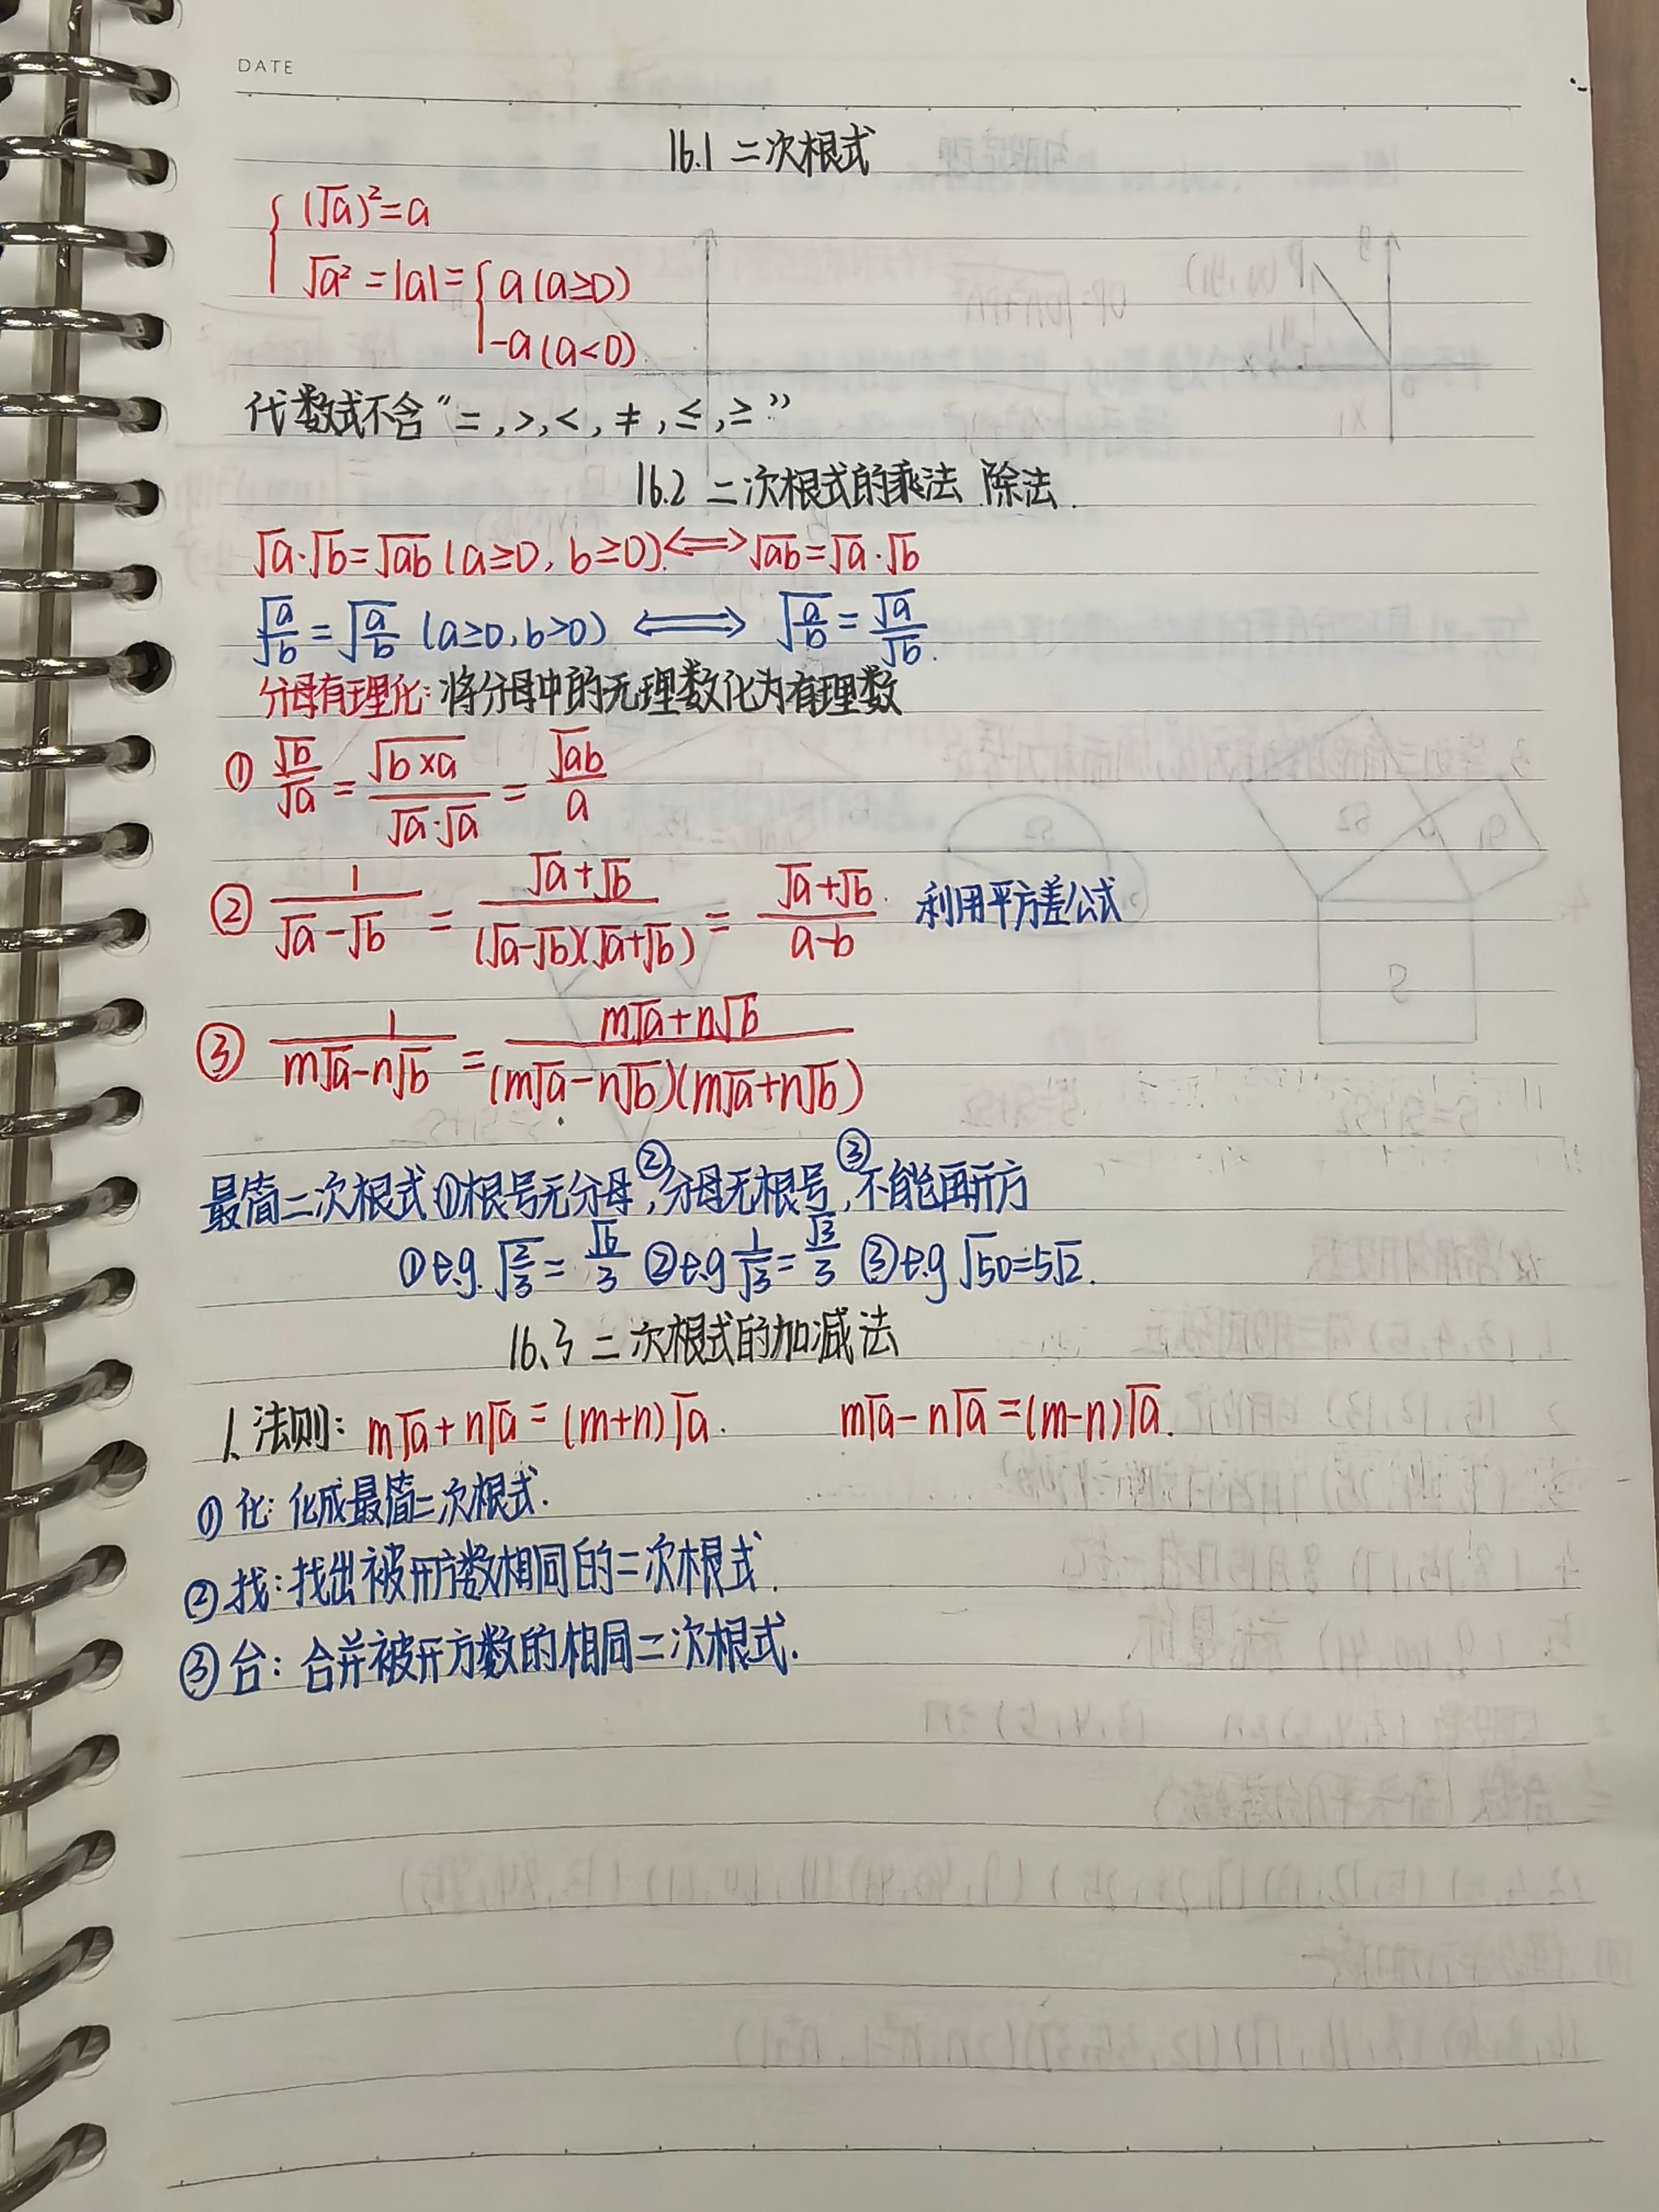 DATE
16.1 二次根式
(√a)²=a
√a² =|a|= { a (a≥0)
-a (a<0)
代数式不含“=,>,<,≠,≤,≥”
16.2 二次根式的乘法 除法.
√a·√b=√ab (a≥0, b≥0) ⟺ √ab=√a·√b
√a/√b=√(a/b) (a≥0,b>0) ⟺ √(a/b)=√a/√b.
分母有理化:将分母中的无理数化为有理数
① √b/√a = √(b×a)/(√a·√a) = √ab/a
② 1/(√a-√b) = (√a+√b)/((√a-√b)(√a+√b)) = (√a+√b)/(a-b) 利用平方差公式
③ 1/(m√a-n√b) = (m√a+n√b)/((m√a-n√b)(m√a+n√b))
最简二次根式①根号无分母,②分母无根号,③不能再开方
①e.g. √(2/3)=√6/3 ②e.g 1/√3=√3/3 ③e.g √50=5√2.
16、3 二次根式的加减法
1、法则: m√a+n√a=(m+n)√a. m√a-n√a=(m-n)√a.
① 化: 化成最简二次根式.
②找:找出被开方数相同的二次根式.
③台:合并被开方数的相同二次根式.